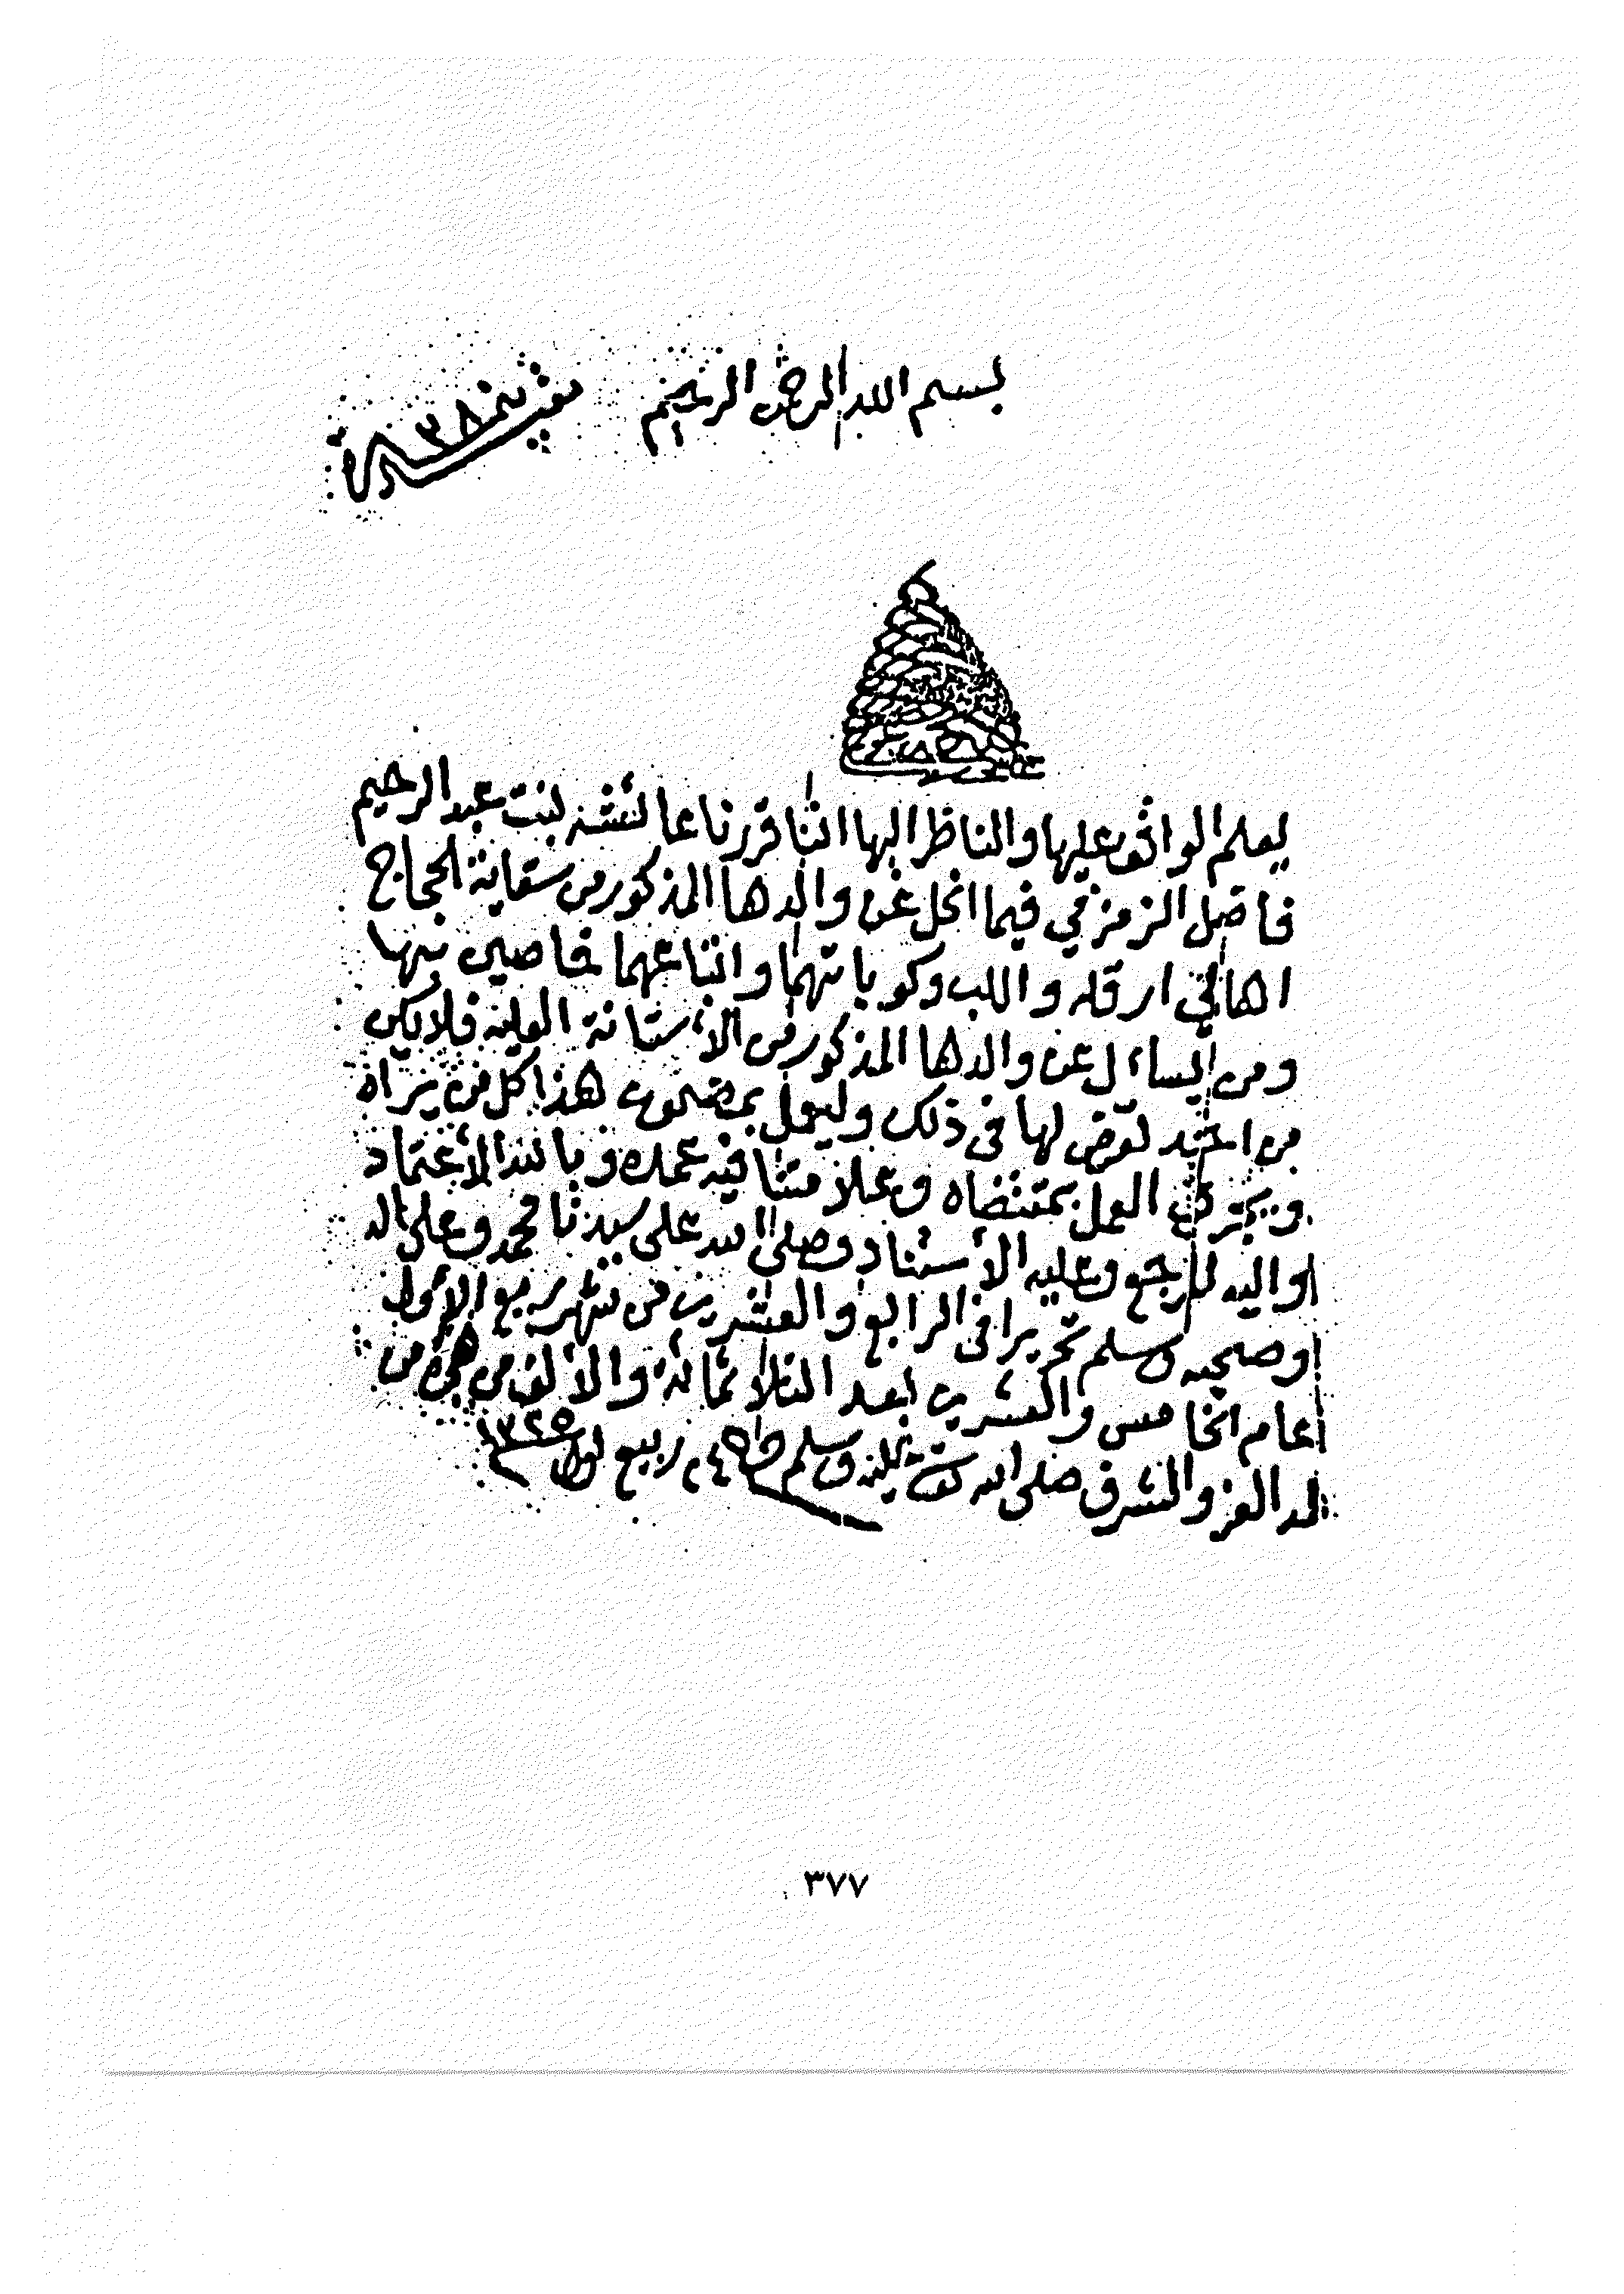 بسم الله الرحمن الرحيم
ليعلم الواقف عليها والناظر اليها اننا قررنا عائشة بنت عبد الرحيم
فاضل الزمزمي فيما انحل عن والدها المذكور من سقاية الحجاج
اهالي ارقله و اللب وكو ياتهما واننا عهما خاصين بها
ومن ايساءل عن والدها المذكور من الأستانة العلية فلا يكن
من احد تعرض لها فى ذلك وليعمل بمضمون هذا كل من يراه
و يجري العمل بمقتضاه وعلامتنا فيه عمده وبالله الأعتماد
واليه المرجع وعليه الأستناد وصلى الله على سيدنا محمد وعلى اله
وصحبه وسلم تحريرا فى الرابع والعشرين من شهر ربيع الأول
عام الخامس والعشرين بعد الثلاثمائة والألف من هجرة من
له العز والشرف صلى الله عليه وسلم ٢٤ ربيع اول ١٣٢٥
٣٧٧